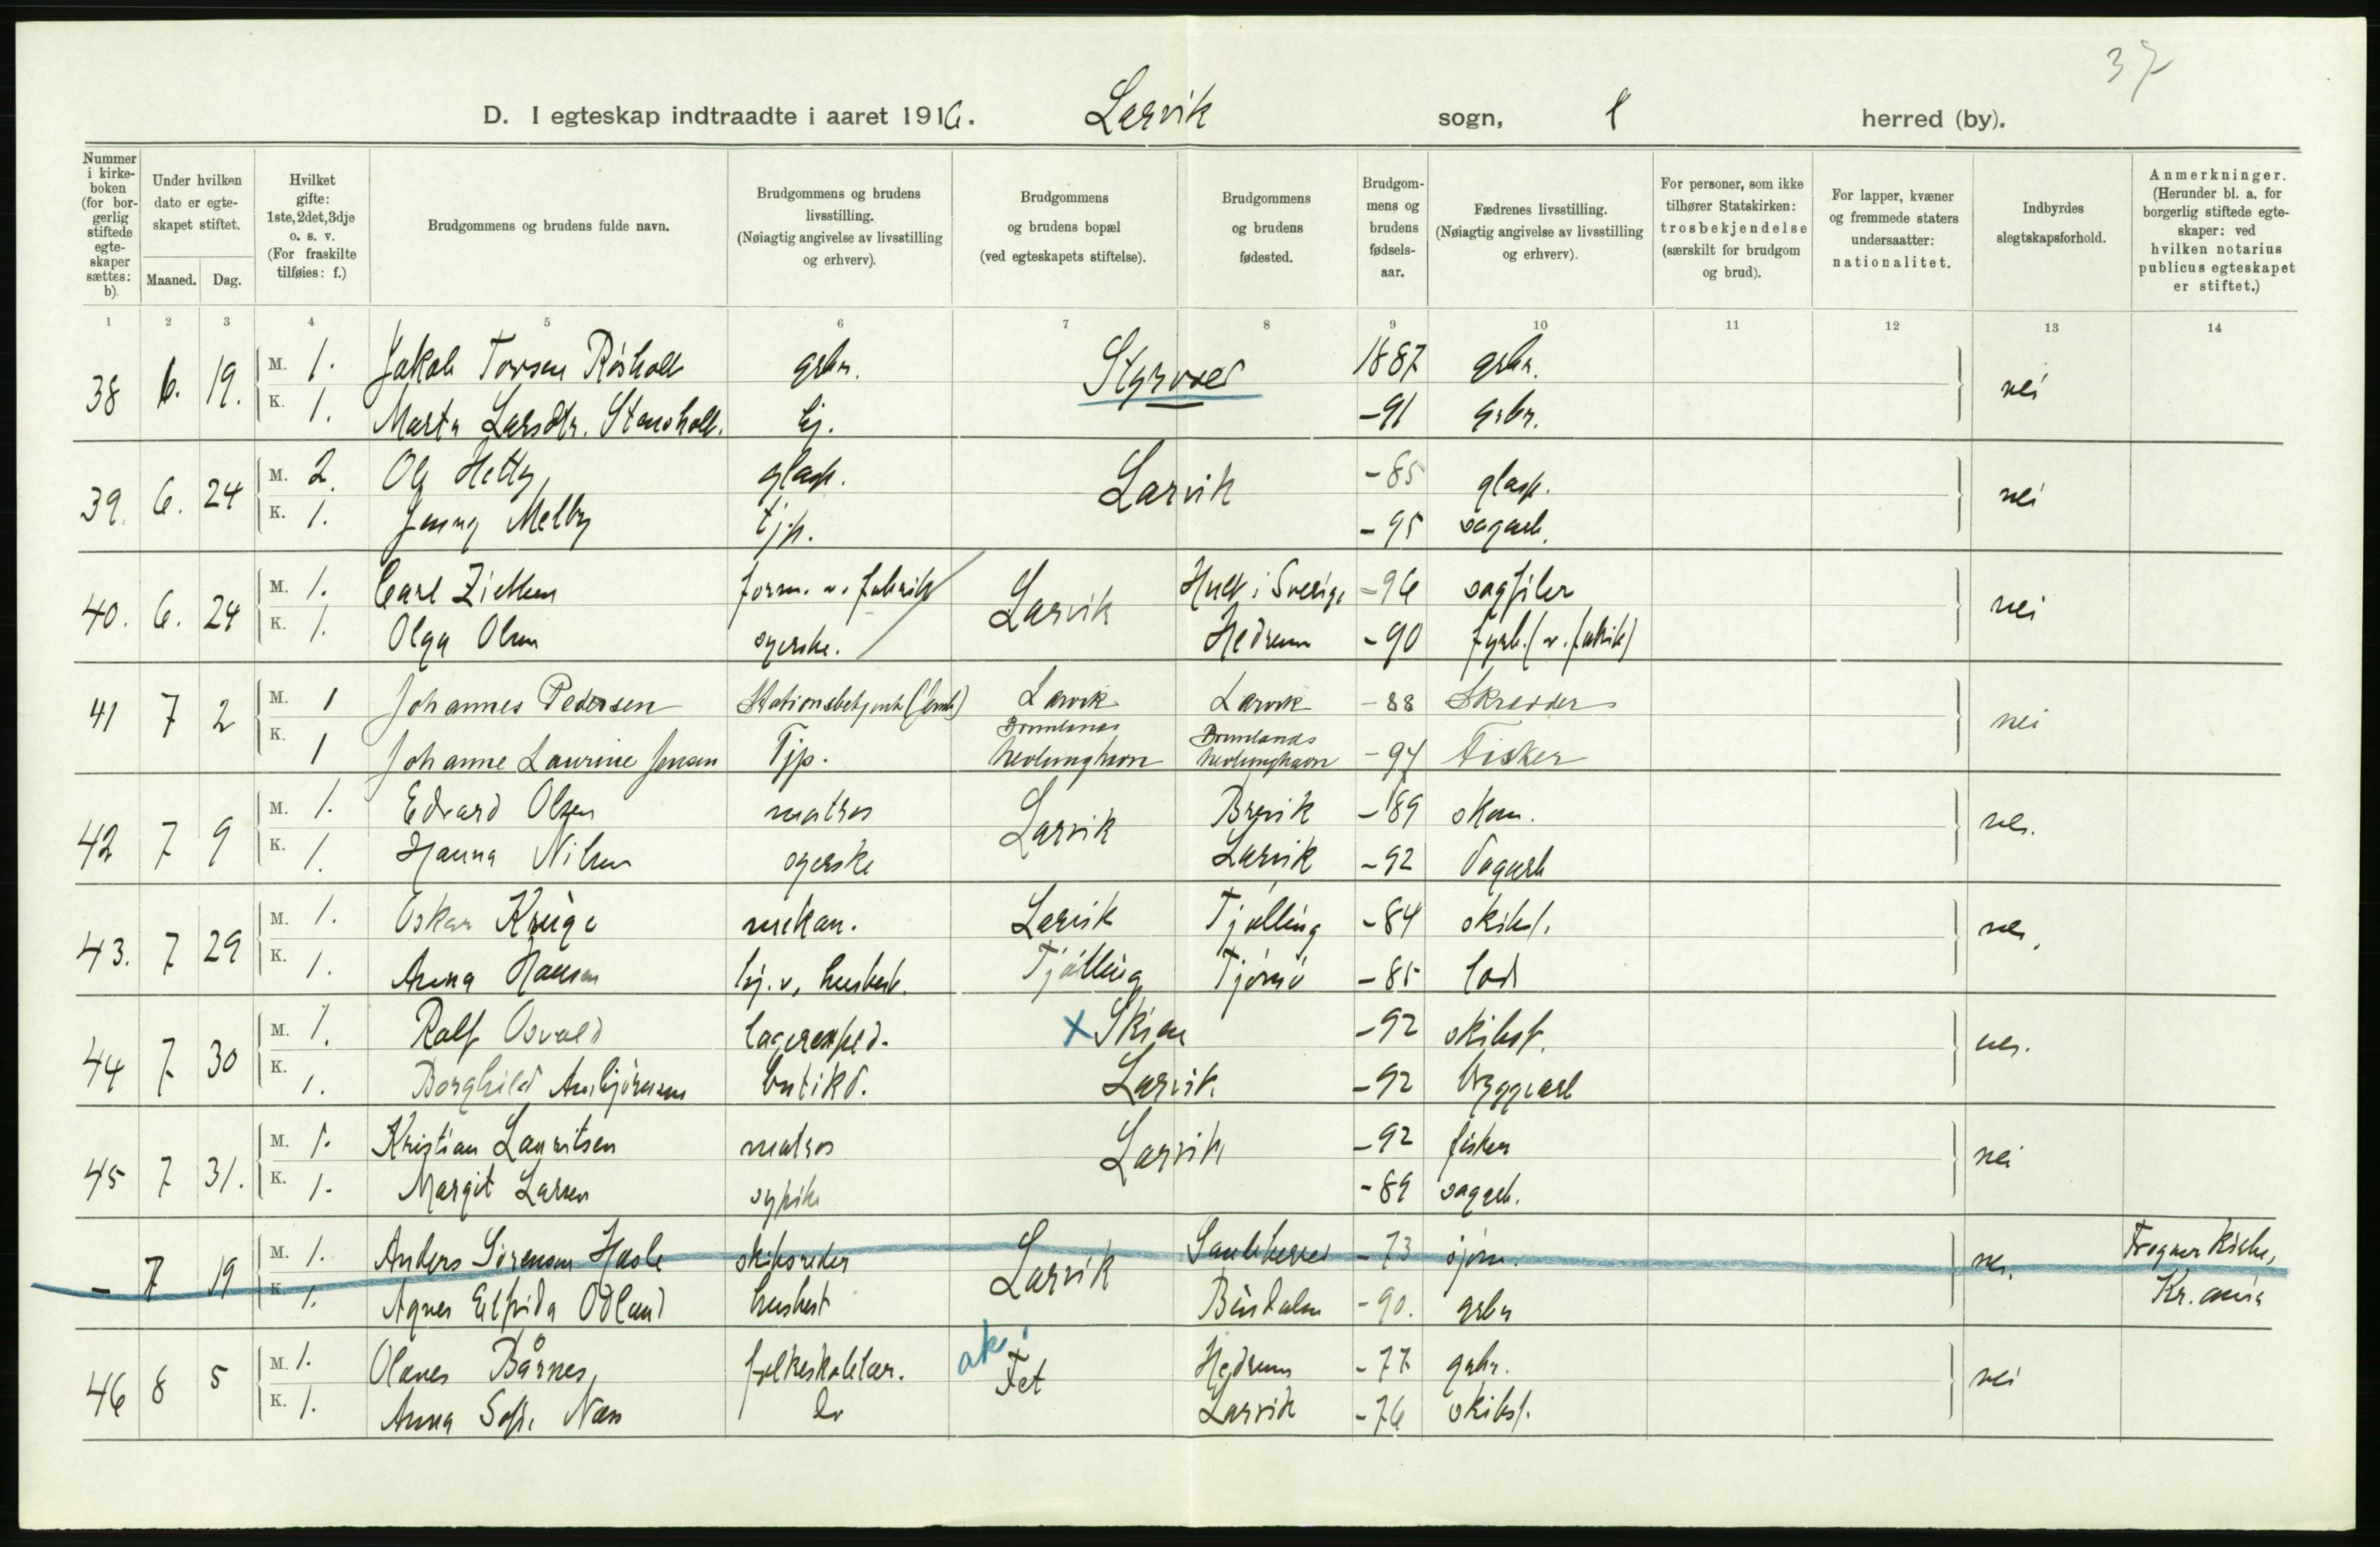 37
D. I egteskap indtraadte i aaret 1916. Larvik sogn, herred (by).
Nummer i kirkeboken (for borgerlig stiftede egteskaper sættes: b).
Under hvilken dato er egteskapet stiftet.
Maaned. Dag.
Hvilket gifte: 1ste, 2det, 3dje o. s. v. (For fraskilte tilføies: f.)
Brudgommens og brudens fulde navn.
Brudgommens og brudens livsstilling. (Nøiagtig angivelse av livsstilling og erhverv).
Brudgommens og brudens bopæl (ved egteskapets stiftelse).
Brudgommens og brudens fødested.
Brudgommens og brudens fødselsaar.
Fædrenes livsstilling. (Nøiagtig angivelse av livsstilling og erhverv).
For personer, som ikke tilhører Statskirken: trosbekjendelse (særskilt for brudgom og brud).
For lapper, kvæner og fremmede staters undersaatter: nationalitet.
Indbyrdes slegtskapsforhold.
Anmerkninger. (Herunder bl. a. for borgerlig stiftede egteskaper: ved hvilken notarius publicus egteskapet er stiftet.)
1 2 3 4 5 6 7 8 9 10 11 12 13 14
38 6. 19. M. 1. Jakob Torsen Rösholt grbr. Styrvoll 1887 grbr. nei
K. 1. Marta Larsdtr. Stensholt. hj. -91 grbr.
39. 6. 24 M. 2. Ole Hetty, glasp. Larvik -85 glasp. nei
K. 1. Jenny Melby tjp. -95 sagarb.
40. 6. 24 M. 1. Carl Ziethen form. v. fabrik Larvik i Sverige -96 sagfiler nei
K. 1. Olga Olsen syerske. Hedrum -90 fyrb. (v. fabrik)
41 7 2 M. 1 Johannes Pedersen Stationsbetjent (Jernb) Larvik Larvik -88 Skredder nei
K. 1 Johanne Laurine Jensen Tjp. Brunlanes Nevlunghavn Brunlands Nevlunghavn -94 Fisker
42 7 9 M. 1. Edvard Olsen matros Larvik Brevik -89 skom. nei.
K. 1. Hanna Nilsen syerske Larvik -92 Sagarb
43. 7 29 M. 1. Oskar Krüge mekan. Larvik Tjølling -84 skibsf. nei.
K. 1. Anna Hansen hj. v. husbest. Tjølling Tjømö -85 lods
44 7 30 M. 1. Ralf Osvald lagerexped. x Skien -92 skibsf. nei.
K. 1. Borghild Ambjörnsen butikd. Larvik -92 bryggearb
45 7 31. M. 1. Kristian Lauritsen matros Larvik -92 fisker nei
K. 1. Margit Larsen sypike -89 sagarb.
- 7 19 M. 1. Anders Sörensen Hasle skibsreder Larvik Sauleherred -73 sjøm. nei. Frogner Kirke,
K. 1. Agnes Elfrida Ödland husbest Bindalen -90. grbr Kr.ania
46 8 5 M. 1. Olaves Bårnes, folkeskolelær. ak. Fet Hedrum -77 grbr. nei
K. 1. Anna Sofie Næss Do Larvik -76 skibsf.